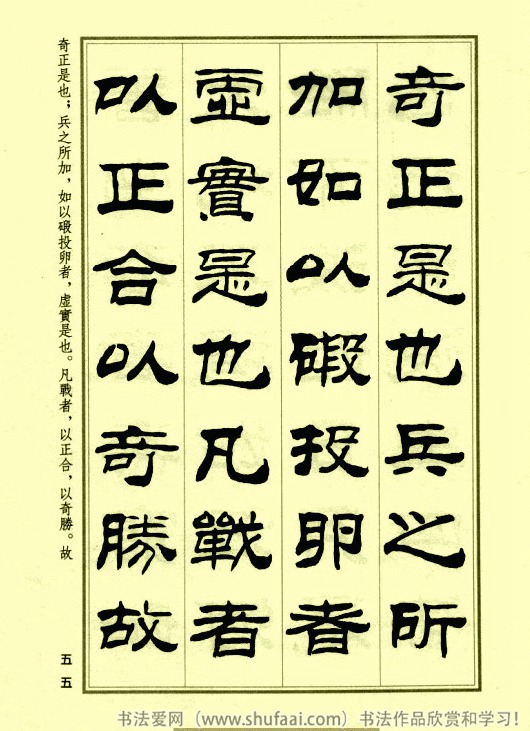 奇正是也兵之所
加如以碬投卵者
虛實是也凡戰者
以正合以奇勝故
奇正是也；兵之所加，如以碬投卵者，虛實是也。凡戰者，以正合，以奇勝。故
五五
书法爱网（www.shufaai.com）书法作品欣赏和学习！